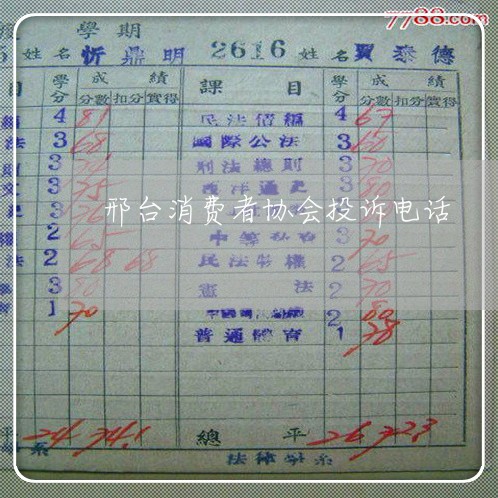 7788.com
學期
姓名 忻鼎明 2616 姓名 賈泰德
目 學分 成績 課目 學分 成績
分數 扣分 實得 分數 扣分 實得
4 81 民法債編 4 67
法 3 68 國際公法 3 60
3 刑法總則 3 70
3 75 西洋通史 3 80
邢台消费者协会投诉电话
2 65 3 70
法 2 68 68 民法物權 2 65
3 80 憲法 2 70
1 70 2 80
普通體育 1 78
24 74.1 總平 26 72.3
系 法律學系